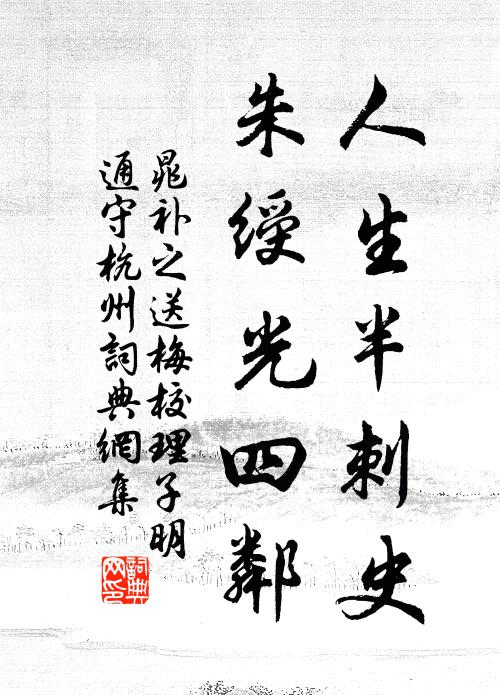 人生半刺史
朱綬光四鄰
晁补之送梅校理子明
通守杭州詞典網集
詞典
网印